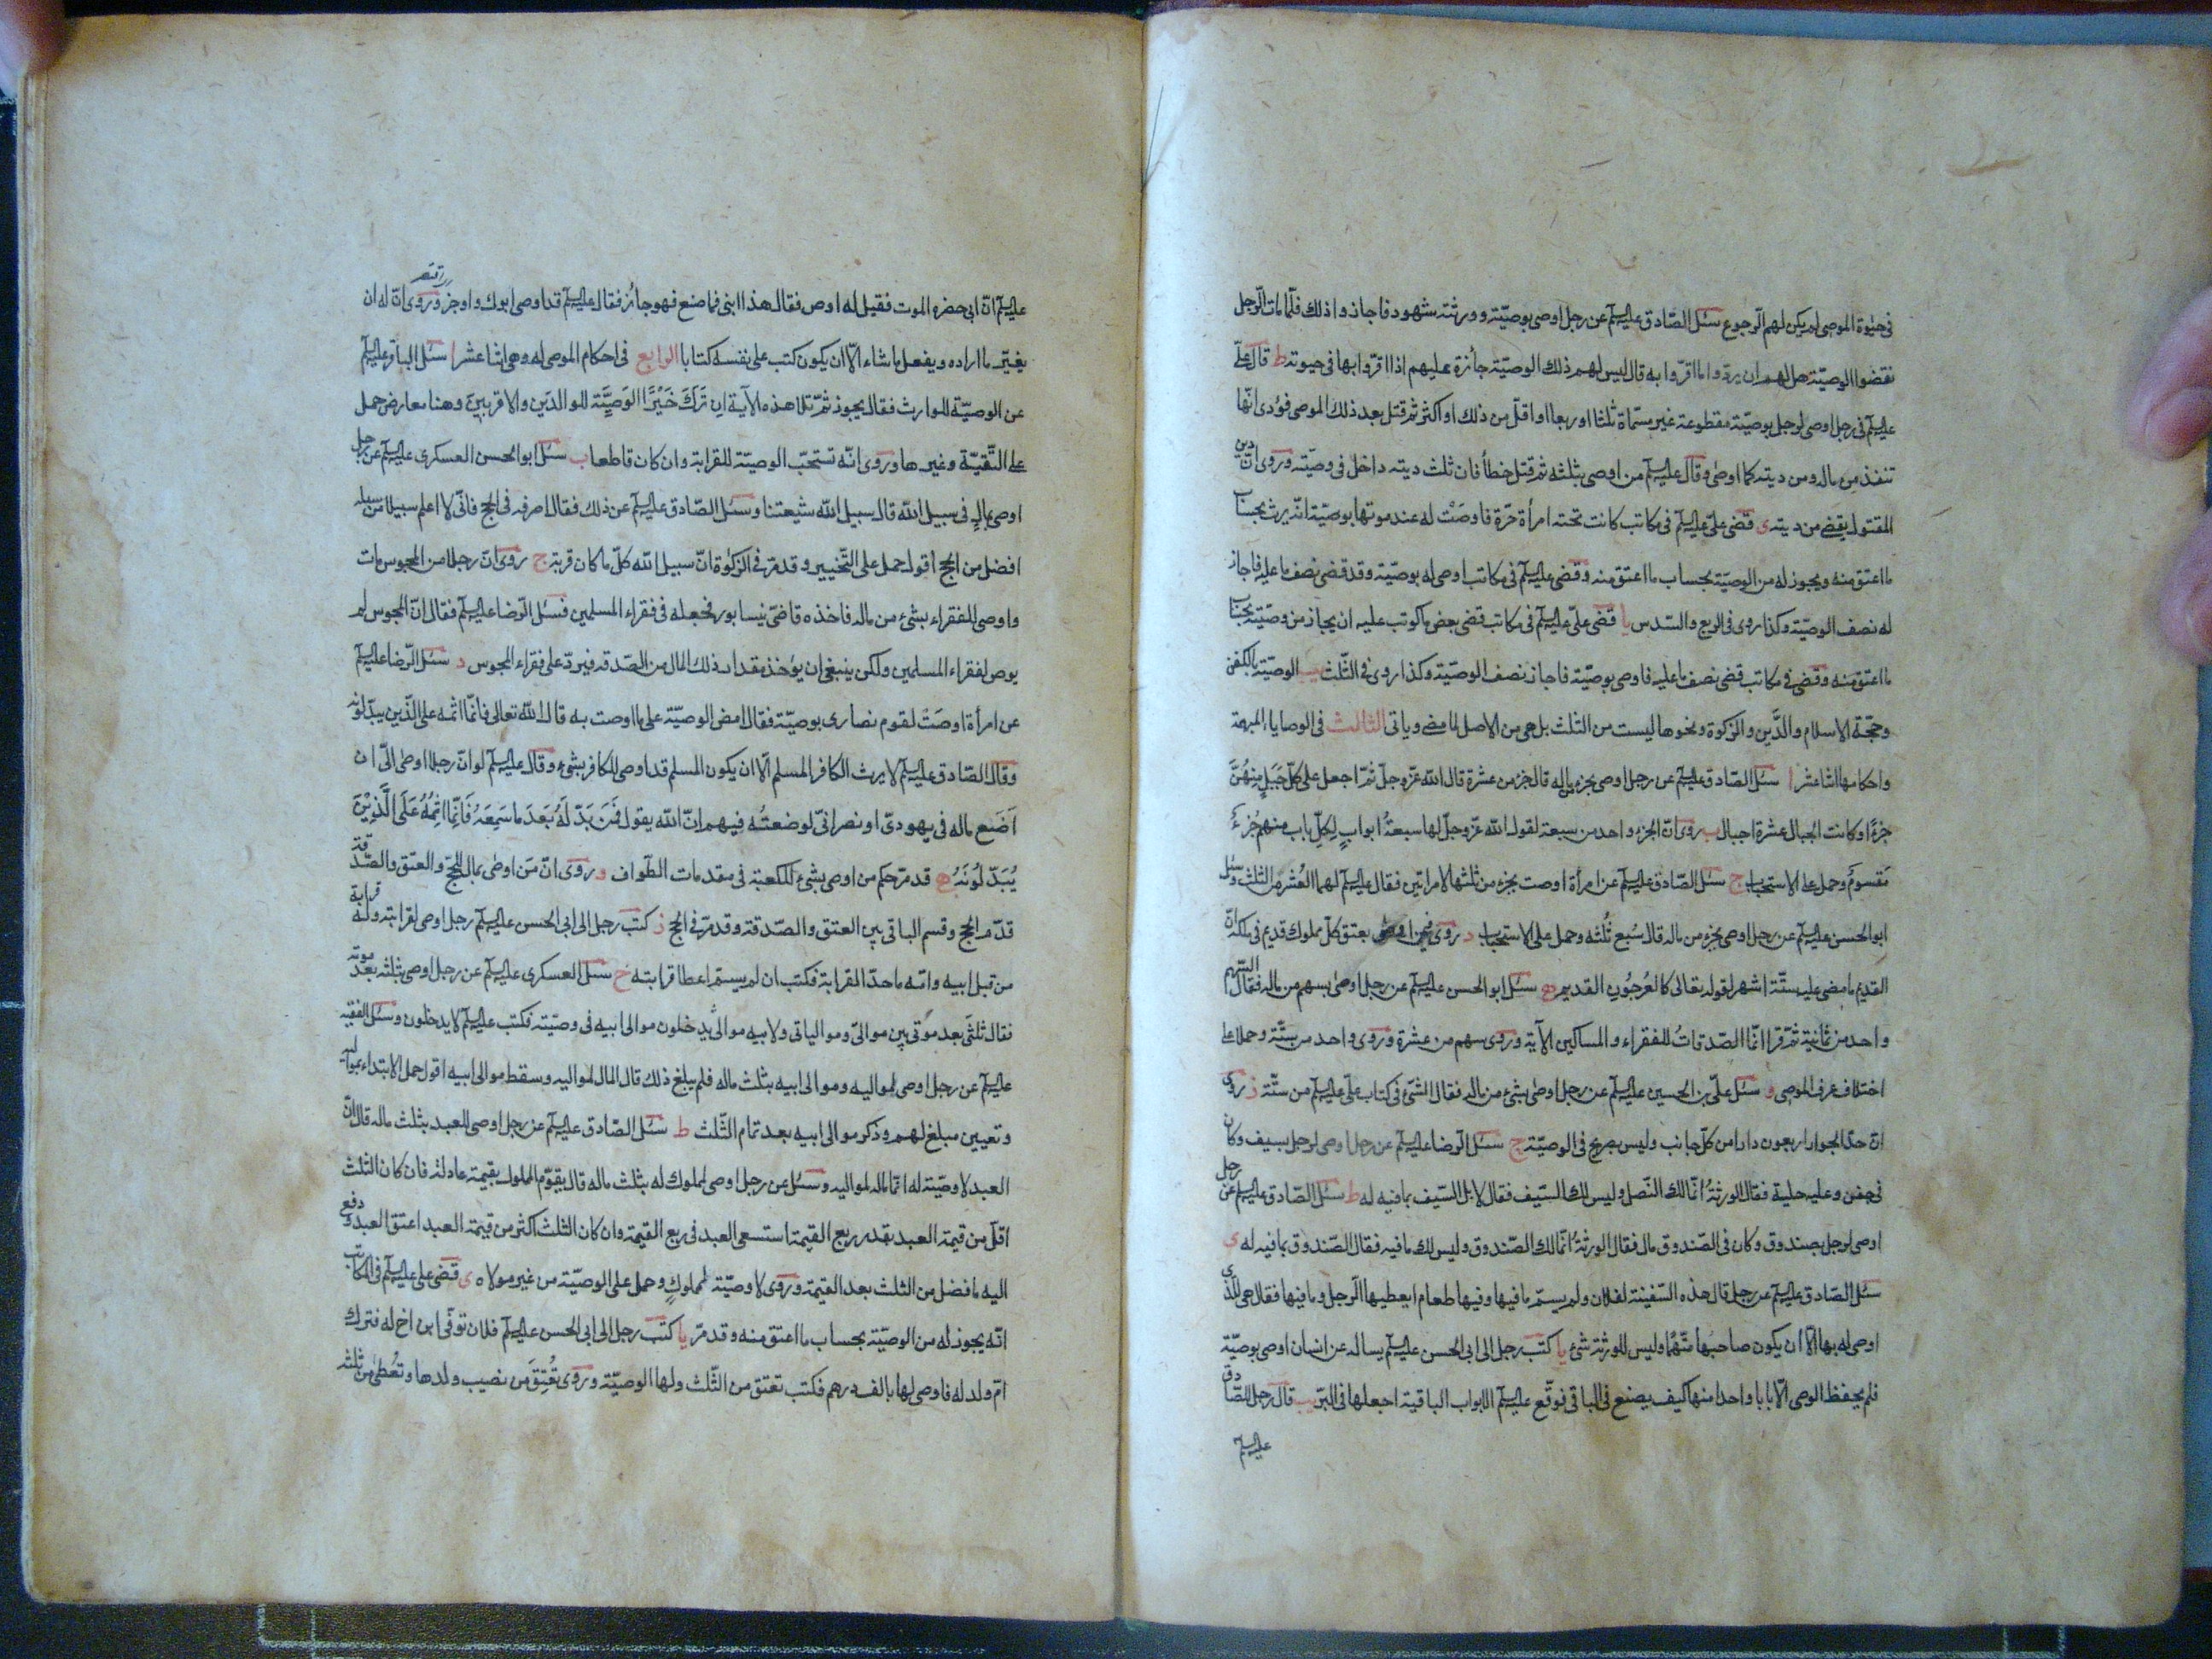 في حيٰوة الموصى لم يكن لهم الرّجوع سئل الصّادق عليه السلم عن رجل اوصى بوصيّة وورثته شهود فاجازوا ذلك فلمّا مات الرّجل
نقضوا الوصيّة هل لهم ان يردّوا ما اقرّوا به قال ليس لهم ذلك الوصيّة جائزة عليهم اذا اقرّوا بها في حيوته ط قال علىّ
عليه السلم في رجل اوصى لرجل بوصيّة مقطوعة غير مسمّاة ثلثا او ربعا او اقلّ من ذلك او اكثر ثم قتل بعد ذلك الموصى فودى انّها
تنفذ من ماله ومن ديته كما اوصٰى وقال عليه السلم من اوصى بثلثه ثم قتل خطأ فان ثلث ديته داخل في وصيّته وروى انّ دين
المقتول يقضى من ديته ى قضى علىّ عليه السلم في مكاتب كانت تحته امرأة حرّة فاوصَتْ له عند موتها بوصيّة انّه يرث بحساب
ما اعتق منه ويجوز له من الوصيّة بحساب ما اعتق منه وقضى عليه السلم في مكاتب اوصى له بوصيّة وقد قضى نصف ما عليه فاجاز
له نصف الوصيّة وكذا روى في الربع والسّدس يا قضى علىّ عليه السلم في مكاتب قضى بعض ما كوتب عليه ان يجاز من وصيّته بحساب
ما اعتق منه وقضى في مكاتب قضى نصف ما عليه فاوصى بوصيّة فاجاز نصف الوصيّة وكذا روى في الثّلث يب الوصيّة بالكفن
وحجّة الاسلام والدَّين والزكوة ونحوها ليست من الثلث بل هى من الاصل لما مضى وياتى الثالث في الوصايا المبهمة
واحكامها اثنا عشر ا سئل الصّادق عليه السلم عن رجل اوصى بجزء من ماله قال جزء من عشرة قال الله عزّ وجلّ ثمّ اجعل على كلّ جَبَلٍ مِنهُنَّ
جزءًا وكانت الجبال عشرة اجبال ب روى انّ الجزء واحد من سبعة لقول الله عزّ وجلّ لها سبعةُ ابوابٍ لِكلِّ بابٍ منهم جُزءٌ
مَقسومٌ وحمل على الاستحباب ج سئل الصّادق عليه السلم عن امرأة اوصت بجزء من ثلثها لامراتين فقال عليه السلم لهما العُشر من الثلث وسئل
ابو الحسن عليه السلم عن رجل اوصى بجزء من ماله قال سُبع ثُلثه وحمل على الاستحباب د روى فيمن اوصى بعتق كلّ مملوك قديم في ملكه انّ
القديم ما مضى عليه ستّة اشهر لقوله تعالى كالعُرجُونِ القديم ه سئل ابو الحسن عليه السلم عن رجل اوصٰى بسهم من ماله فقال السّهم
واحد من ثمانية ثمّ قرا انّما الصّدقاتُ للفقراء والمساكين الآية وروى سهم من عشرة وروى واحد من ستّة وحملا على
اختلاف عرف الموصى و سئل علىّ بن الحسين عليه السلم عن رجل اوصٰى بشئ من ماله فقال الشّئ في كتاب علىّ عليه السلم من ستّة ز روى
انّ حدّ الجوار اربعون دارا من كلّ جانب وليس بصريح في الوصيّة ح سئل الرّضا عليه السلم عن رجل اوصى لرجل بسيف وكان
في جفن وعليه حلية فقال الورثةُ انّما لك النّصل وليس لك السّيف فقال لا بل السّيف بما فيه له ط سئل الصّادق عليه السلم عن رجل
اوصى لرجل بصندوق وكان في الصّندوق مال فقال الورثةُ انّما لك الصّندوق وليس لك ما فيه فقال الصّندوق بما فيه له ى
سئل الصّادق عليه السلم عن رجل قال هذه السّفينة لفلان ولم يسمّ ما فيها وفيها طعام ايعطيها الرّجل وما فيها فقال هى للّذى
اوصى له بها الّا ان يكون صاحبُها متّهمًا وليس للورثة شئ يا كتب رجل الى ابى الحسن عليه السلم يساله عن انسان اوصى بوصيّة
فلم يحفظ الوصى الّا بابا واحدا منها كيف يصنع في الباقى فوقّع عليه السلم الابواب الباقية اجعلها في البرّ يب قال رجل للصّادق
عليه السلم
عليه السلم انّ ابى حضره الموت فقيل له اوص فقال هذا ابنى فما صنع فهو جائز فقال عليه السلم قد اوصى ابوك واوجز وروى انّ له ان
يغيّر ما اراده ويفعل ما شاء الّا ان يكون كتب على نفسه كتابا الرابع في احكام الموصى له وهى اثنا عشر ا سئل الباقر عليه السلم
عن الوصيّة للوارث فقال يجوز ثمّ تلا هذه الآية اِن تَرَكَ خَيْرًا الوَصِيَّة للوالدَين والاقربينَ وهنا معارض حمل
على التّقيّة وغيرها وروى انّه تستحبّ الوصيّة للقرابة وان كان قاطعا ب سئل ابو الحسن العسكرى عليه السلم عن رجل
اوصى بمالٍ في سبيل الله قال سبيل الله شيعتنا وسئل الصّادق عليه السلم عن ذلك فقال اصرفه في الحجّ فانّى لا اعلم سبيلا من سبله
افضل من الحجّ اقول حمل على التّخيير وقد مرّ في الزّكوٰة انّ سبيل الله كلّ ما كان قربة ج روى انّ رجلا من المجوس مات
واوصى للفقراء بشئ من ماله فاخذه قاضى نيسابور فجعله في فقراء المسلمين فسئل الرّضا عليه السلم فقال انّ المجوس لم
يوص لفقراء المسلمين ولكن ينبغى ان يؤخذ مقدار ذلك المال من الصّدقة فيردّ على فقراء المجوس د سئل الرّضا عليه السلم
عن امرأة اوصَتْ لقوم نصارى بوصيّة فقال امض الوصيّة على ما اوصت به قال الله تعالى فانّما اثمه على الّذين يبدّلونه
وقال الصّادق عليه السلم لا يرث الكافر المسلم الّا ان يكون المسلم قد اوصى للكافر بشئ وقال عليه السلم لو انّ رجلا اوصٰى الىّ ان
اَضَع ماله في يهودىّ او نصرانىّ لوضعتُه فيهم انّ الله يقول فَمَن بَدَّلَهُ بَعَدَ ما سَمِعَهُ فَانَّما اِثمُهُ عَلَى الَّذِيْنَ
يُبَدّلُونَهُ ه قد مرّ حكم من اوصى بشئ للكعبة في مقدمات الطّواف و روى انّ مَن اوصٰى بمال للحجّ والعتق والصّدقة
قدّم الحجّ وقسم الباقى بين العتق والصّدقة وقد مرّ في الحجّ ز كتب رجل الى ابى الحسن عليه السلم رجل اوصى لقرابته وله قرابة
من قبل ابيه وامّه ما حدّ القرابة فكتب ان لم يسمّ اعطا قرابته ح سئل العسكرى عليه السلم عن رجل اوصى بثلثه بعد موته
فقال ثلثى بعد موتى بين موالىّ وموالياتى ولابيه موالى يدخلون موالى ابيه في وصيّته فكتب عليه السلم لا يدخلون وسئل الفقيه
عليه السلم عن رجل اوصى لمواليه وموالى ابيه بثلث ماله فلم يبلغ ذلك قال المال لمواليه وسقط موالى ابيه اقول حمل الابتداء بمواليه
وتعيين مبلغ لهم وذكر موالى ابيه بعد تمام الثّلث ط سئل الصّادق عليه السلم عن رجل اوصى للعبد بثلث ماله قال انّ
العبد لا وصيّة له انّما ماله لمواليه وسئل عن رجل اوصى لمملوك له بثلث ماله قال يقوّم المملوك بقيمة عادلة فان كان الثلث
اقلّ من قيمة العبد بقدر ربع القيمة استسعى العبد في ربع القيمة وان كان الثلث اكثر من قيمة العبد اعتق العبد ودفع
اليه ما فضل من الثلث بعد القيمة وروى لا وصيّة لمملوكٍ وحمل على الوصيّة من غير مولاه ى قضى على عليه السلم في المكاتب
انّه يجوز له من الوصيّة بحساب ما اعتق منه وقد مرّ يا كتب رجل الى ابى الحسن عليه السلم فلان توفّى ابن اخ له فترك
امّ ولد له فاوصى لها بالف درهم فكتب تعتق من الثّلث ولها الوصيّة وروى تُعْتِق من نصيب ولدها وتُعطٰى من ثلثه